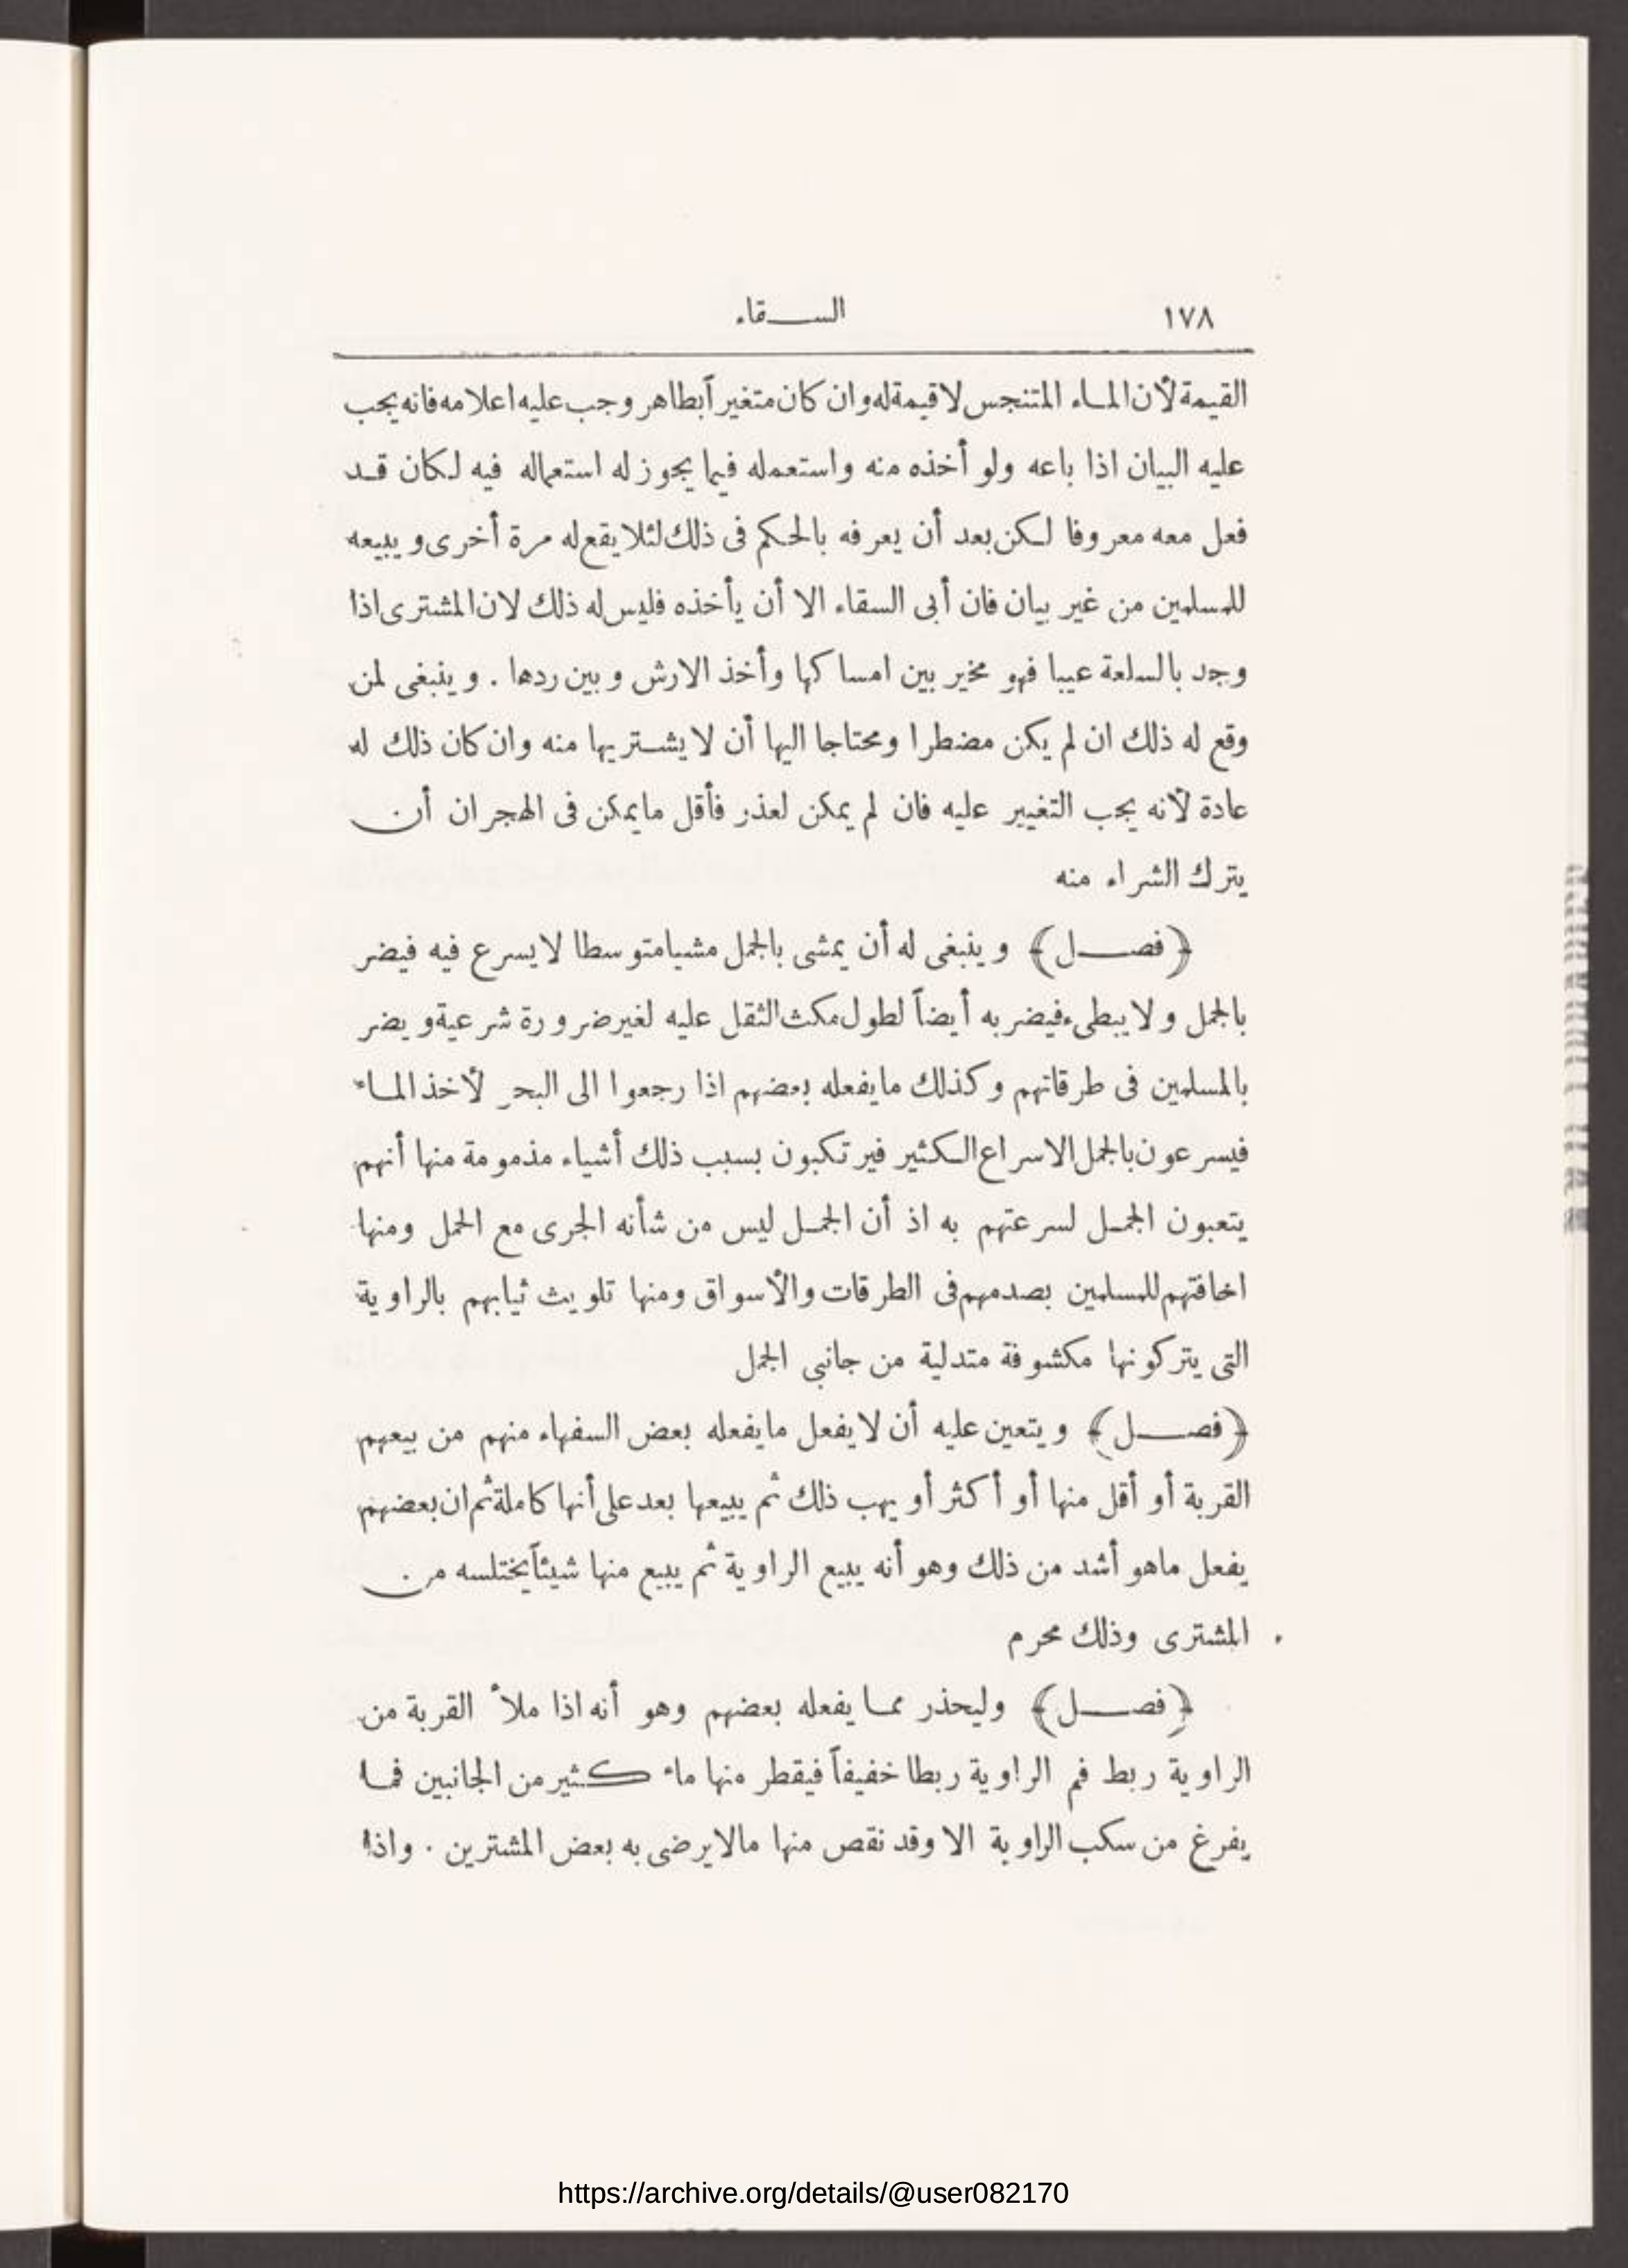 ١٧٨ السقاء
القيمة لأن الماء المتنجس لا قيمة له وان كان متغيراً بطاهر وجب عليه اعلامه فانه يجب
عليه البيان اذا باعه ولو أخذه منه واستعمله فيما يجوز له استعماله فيه لكان قد
فعل معه معروفا لكن بعد أن يعرفه بالحكم فى ذلك لئلا يقع له مرة أخرى ويبيعه
للمسلمين من غير بيان فان أبى السقاء الا أن يأخذه فليس له ذلك لان المشترى اذا
وجد بالسلعة عيبا فهو مخير بين امساكها وأخذ الارش وبين ردها . وينبغى لمن
وقع له ذلك ان لم يكن مضطرا ومحتاجا اليها أن لا يشتريها منه وان كان ذلك له
عادة لأنه يجب التغيير عليه فان لم يمكن لعذر فأقل ما يمكن فى الهجران أن
يترك الشراء منه
﴿فصل﴾ وينبغى له أن يمشى بالجمل مشيا متوسطا لا يسرع فيه فيضر
بالجمل ولا يبطىء فيضر به أيضاً لطول مكث الثقل عليه لغير ضرورة شرعية ويضر
بالمسلمين فى طرقاتهم وكذلك ما يفعله بعضهم اذا رجعوا الى البحر لأخذ الماء
فيسرعون بالجمل الاسراع الكثير فيرتكبون بسبب ذلك أشياء مذمومة منها أنهم
يتعبون الجمل لسرعتهم به اذ أن الجمل ليس من شأنه الجرى مع الحمل ومنها
اخافتهم للمسلمين بصدمهم فى الطرقات والأسواق ومنها تلويث ثيابهم بالراوية
التى يتركونها مكشوفة متدلية من جانبى الجمل
﴿فصل﴾ ويتعين عليه أن لا يفعل ما يفعله بعض السفهاء منهم من بيعهم
القربة أو أقل منها أو أكثر أو يهب ذلك ثم يبيعها بعد على أنها كاملة ثم ان بعضهم
يفعل ماهو أشد من ذلك وهو أنه يبيع الراوية ثم يبيع منها شيئاً يختلسه من
المشترى وذلك محرم
﴿فصل﴾ وليحذر مما يفعله بعضهم وهو أنه اذا ملأ القربة من
الراوية ربط فم الراوية ربطا خفيفاً فيقطر منها ماء كثير من الجانبين فما
يفرغ من سكب الراوية الا وقد نقص منها مالا يرضى به بعض المشترين . واذا
https://archive.org/details/@user082170